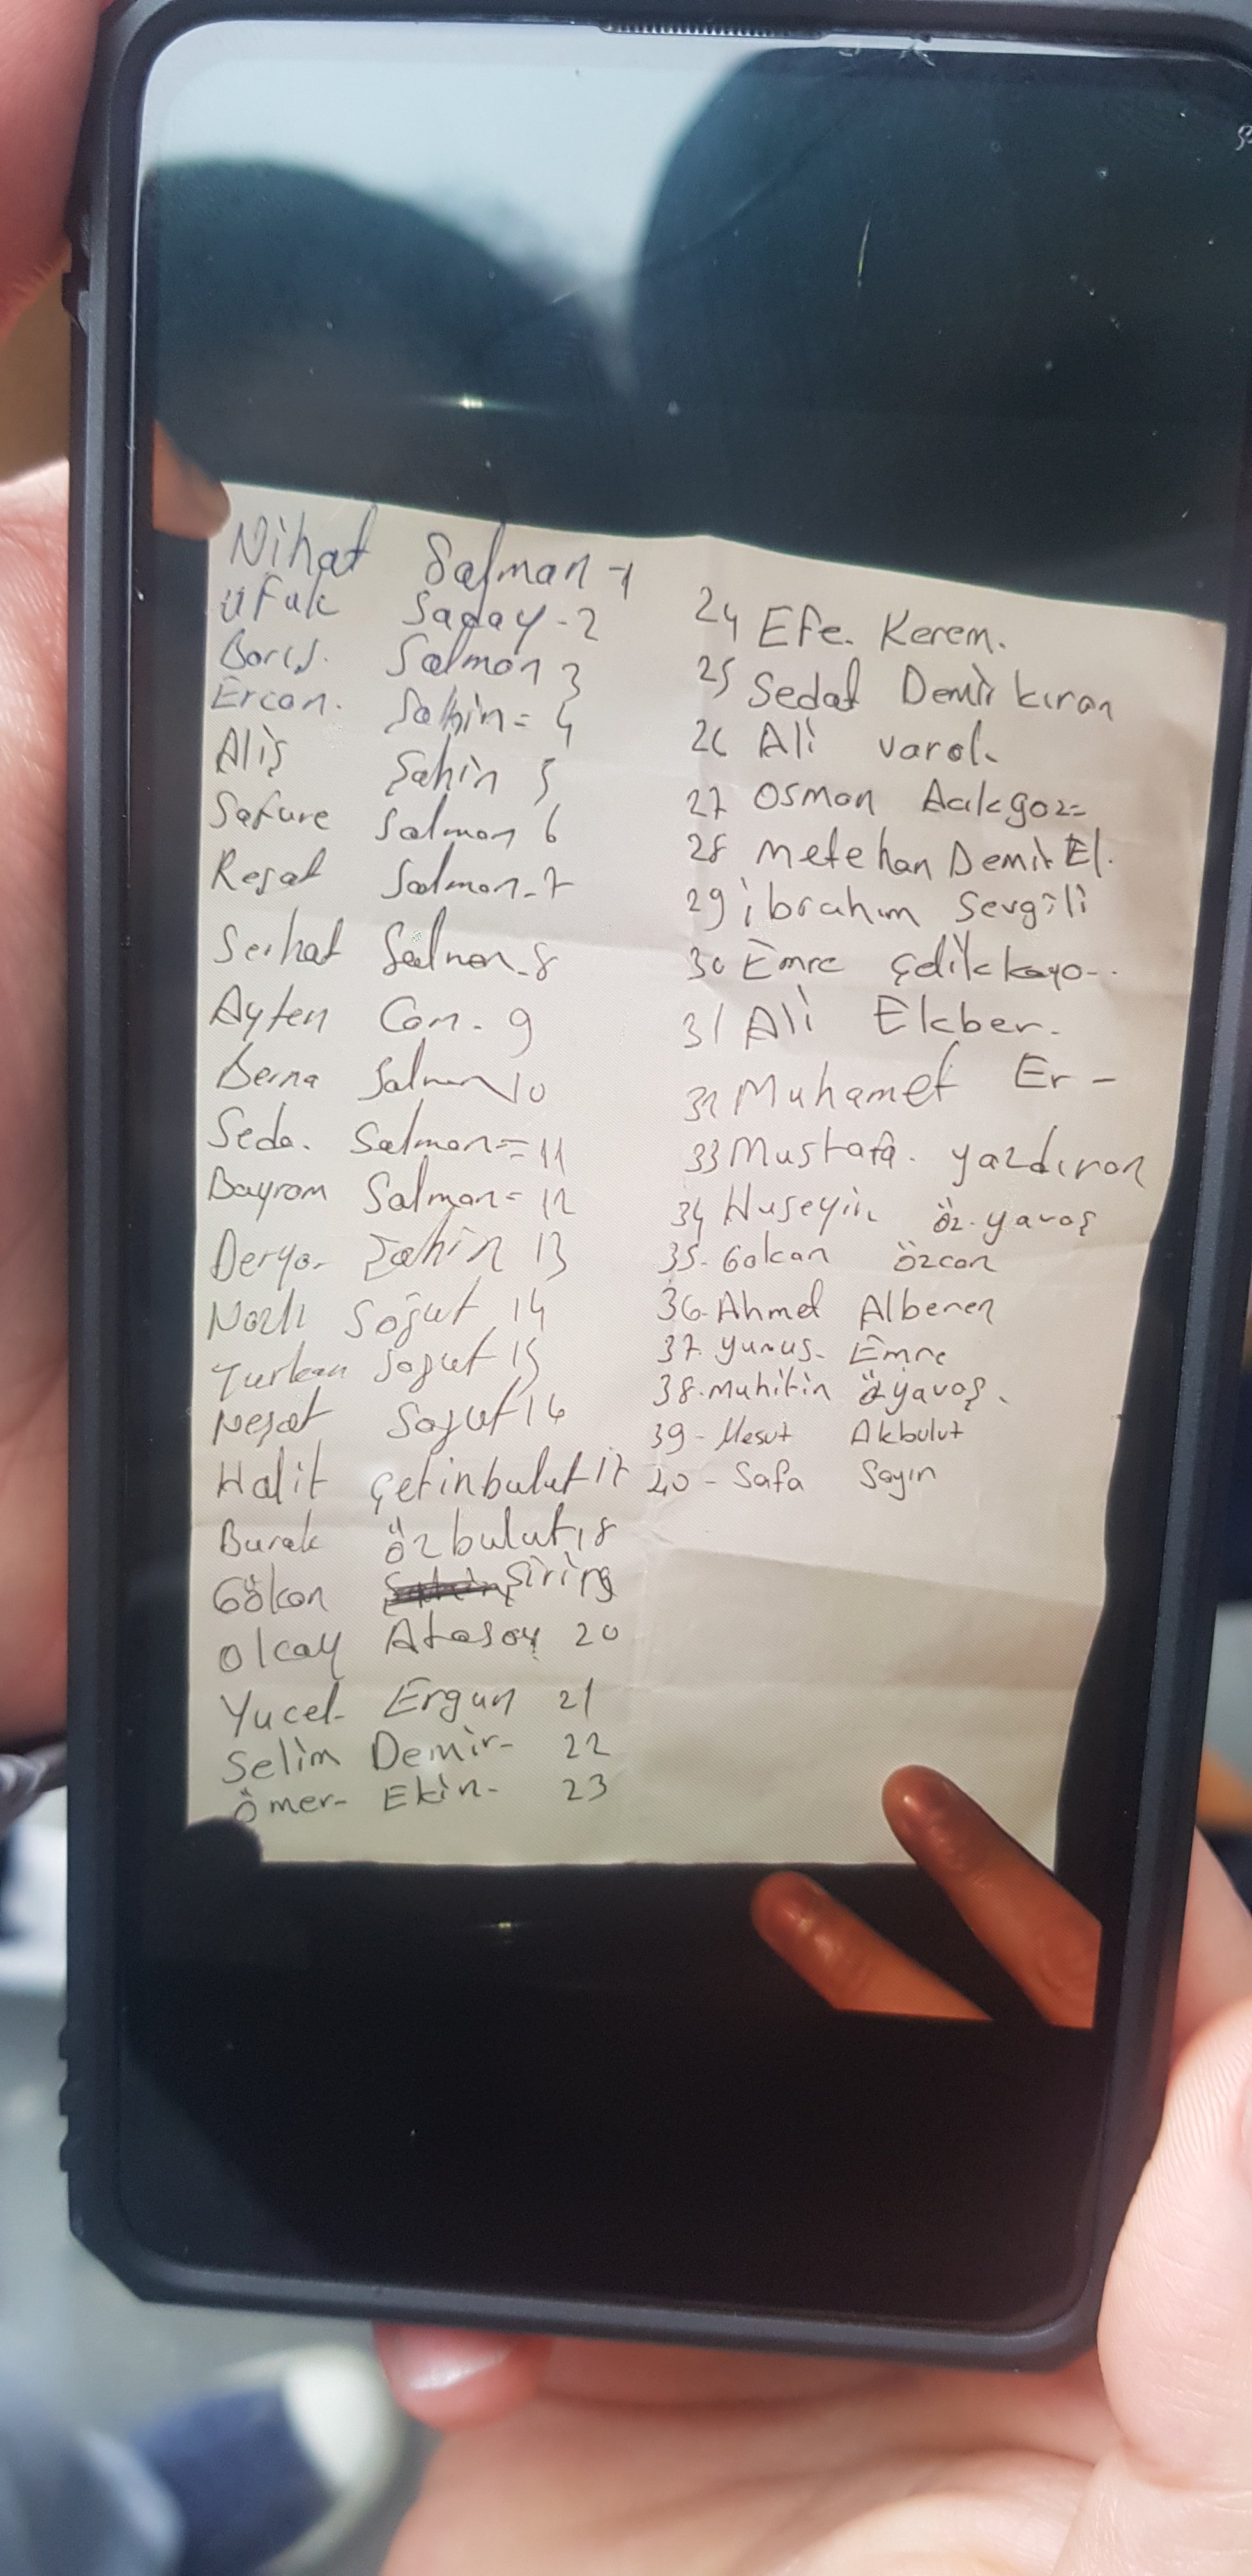 Nihat Salman -1
Ufuk Saday - 2
Barış. Salman 3
Ercan. Şahin = 4
Aliş Şahin 5
Safure Salman 6
Reşat Salman - 7
Serhat Salman - 8
Ayten Can - 9
Berna Salman 10
Seda. Salman = 11
Bayram Salman = 12
Derya - Şahin 13
Nazlı Söğüt 14
Türkan Söğüt 15
Neşat Söğüt 16
Halit Çetinbulut 17
Burak Özbulut 18
Gökan Şirin 19
Olcay Atasoy 20
Yucel - Ergun 21
Selim Demir - 22
Ömer - Ekin - 23
24 Efe. Kerem.
25 Sedat Demirkıran
26 Ali varol.
27 Osman Acıkgoz
28 Metehan DemirEl.
29 İbrahim Sevgili
30 Emre Çelikkaya -
31 Ali Ekber.
32 Muhamet Er -
33 Mustafa. yazdıran
34 Huseyin Öz. yavaş
35. Gokan Özcan
36. Ahmet Alberen
37. yunus. Emre
38. muhitin Özyavaş.
39 - Mesut Akbulut
40 - Safa Sayın